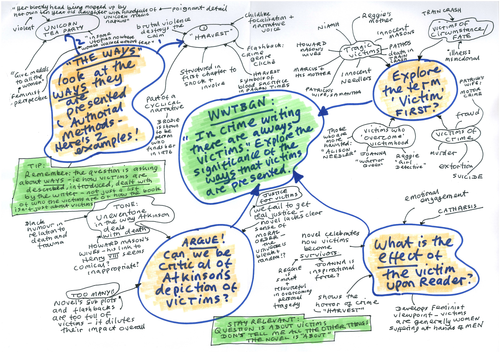 "Her bloody head being mopped up by
her own ten year old daughter with handfuls of
poignant detail
violent
UNICORN
TEA PARTY
brutal violence
destroys the
calm
childlike
focalisation +
narrative
voice
"HARVEST"
Flashback:
crime
genre
cliché
Structured in
first chapter to
shock +
involve
HARVEST
symbol of
blood sacrifice
in PAGAN TIMES
"Give medals
to all the
women"
Feminist
perspective
"THE WAYS"
look at the
WAYS they
are
presented
: Authorial
methods-
Here's 2
examples!
Part of a
cyclical
narrative
WWTBGN:
"In crime writing
there are always
victims" Explore the
significance of the
ways that victims
are presented.
Reggie's
mother
HOWARD
MASON'S
WIVES
innocent
MASONS
Tragic
victims
MARCUS +
HIS MOTHER
innocent
NEEDLERS
PATRICK'S
WIFE, SAMANTHA
TRAIN CRASH
VICTIMS OF
CIRCUMSTANCE/
FATE
illness
MS MACDONALD
Explore
the term
'Victim'
FIRST?
fraud
VICTIMS OF
CRIME
murder
extortion
SUICIDE
Those
who are more
haunted:
"ALISON
NEEDLER"
'Victims who
'OVERCOME'
victimhood
JOANNA
"warrior
queen"
Reggie
"girl
detective"
TIP:
Remember the question is asking
about WAYS - ie how victims are
described, introduced, dealt with
by the writer - not just a list
of who the victims are of the book
ISN'T JUST ABOUT VICTIMS!!!
Black
humour in
relation to
death and
trauma
TONE:
Uneven tone
in the way Atkinson
deals
with death
HOWARD MASON'S
WIVES - no link to
Henry VIII seems
comical?
inappropriate?
TOO MANY?
Novel's sub plots
and flashbacks
are too full of
victims - it dilutes
their impact overall
ARGUE!
Can we be
critical of
Atkinson's
depiction of
Victims?
JUSTICE
for victims?
we fail to get
real justice;
novel lacks clear
sense of
moral
order
Novel celebrates
how victims
become
survivors
Reggie
smart
+
resourceful
in overcoming
personal
tragedy
JOANNA is
inspirational
force?
shows the
horror of crime
"HARVEST"
emotional
engagement
CATHARSIS
What is the
effect of
the victim
upon Reader?
Develops Feminist
viewpoint - victims
are generally women
suffering at hands of MEN
STAY RELEVANT:
QUESTION IS ABOUT VICTIMS
DON'T TELL ME ALL THE OTHER THINGS
THE NOVEL IS ABOUT